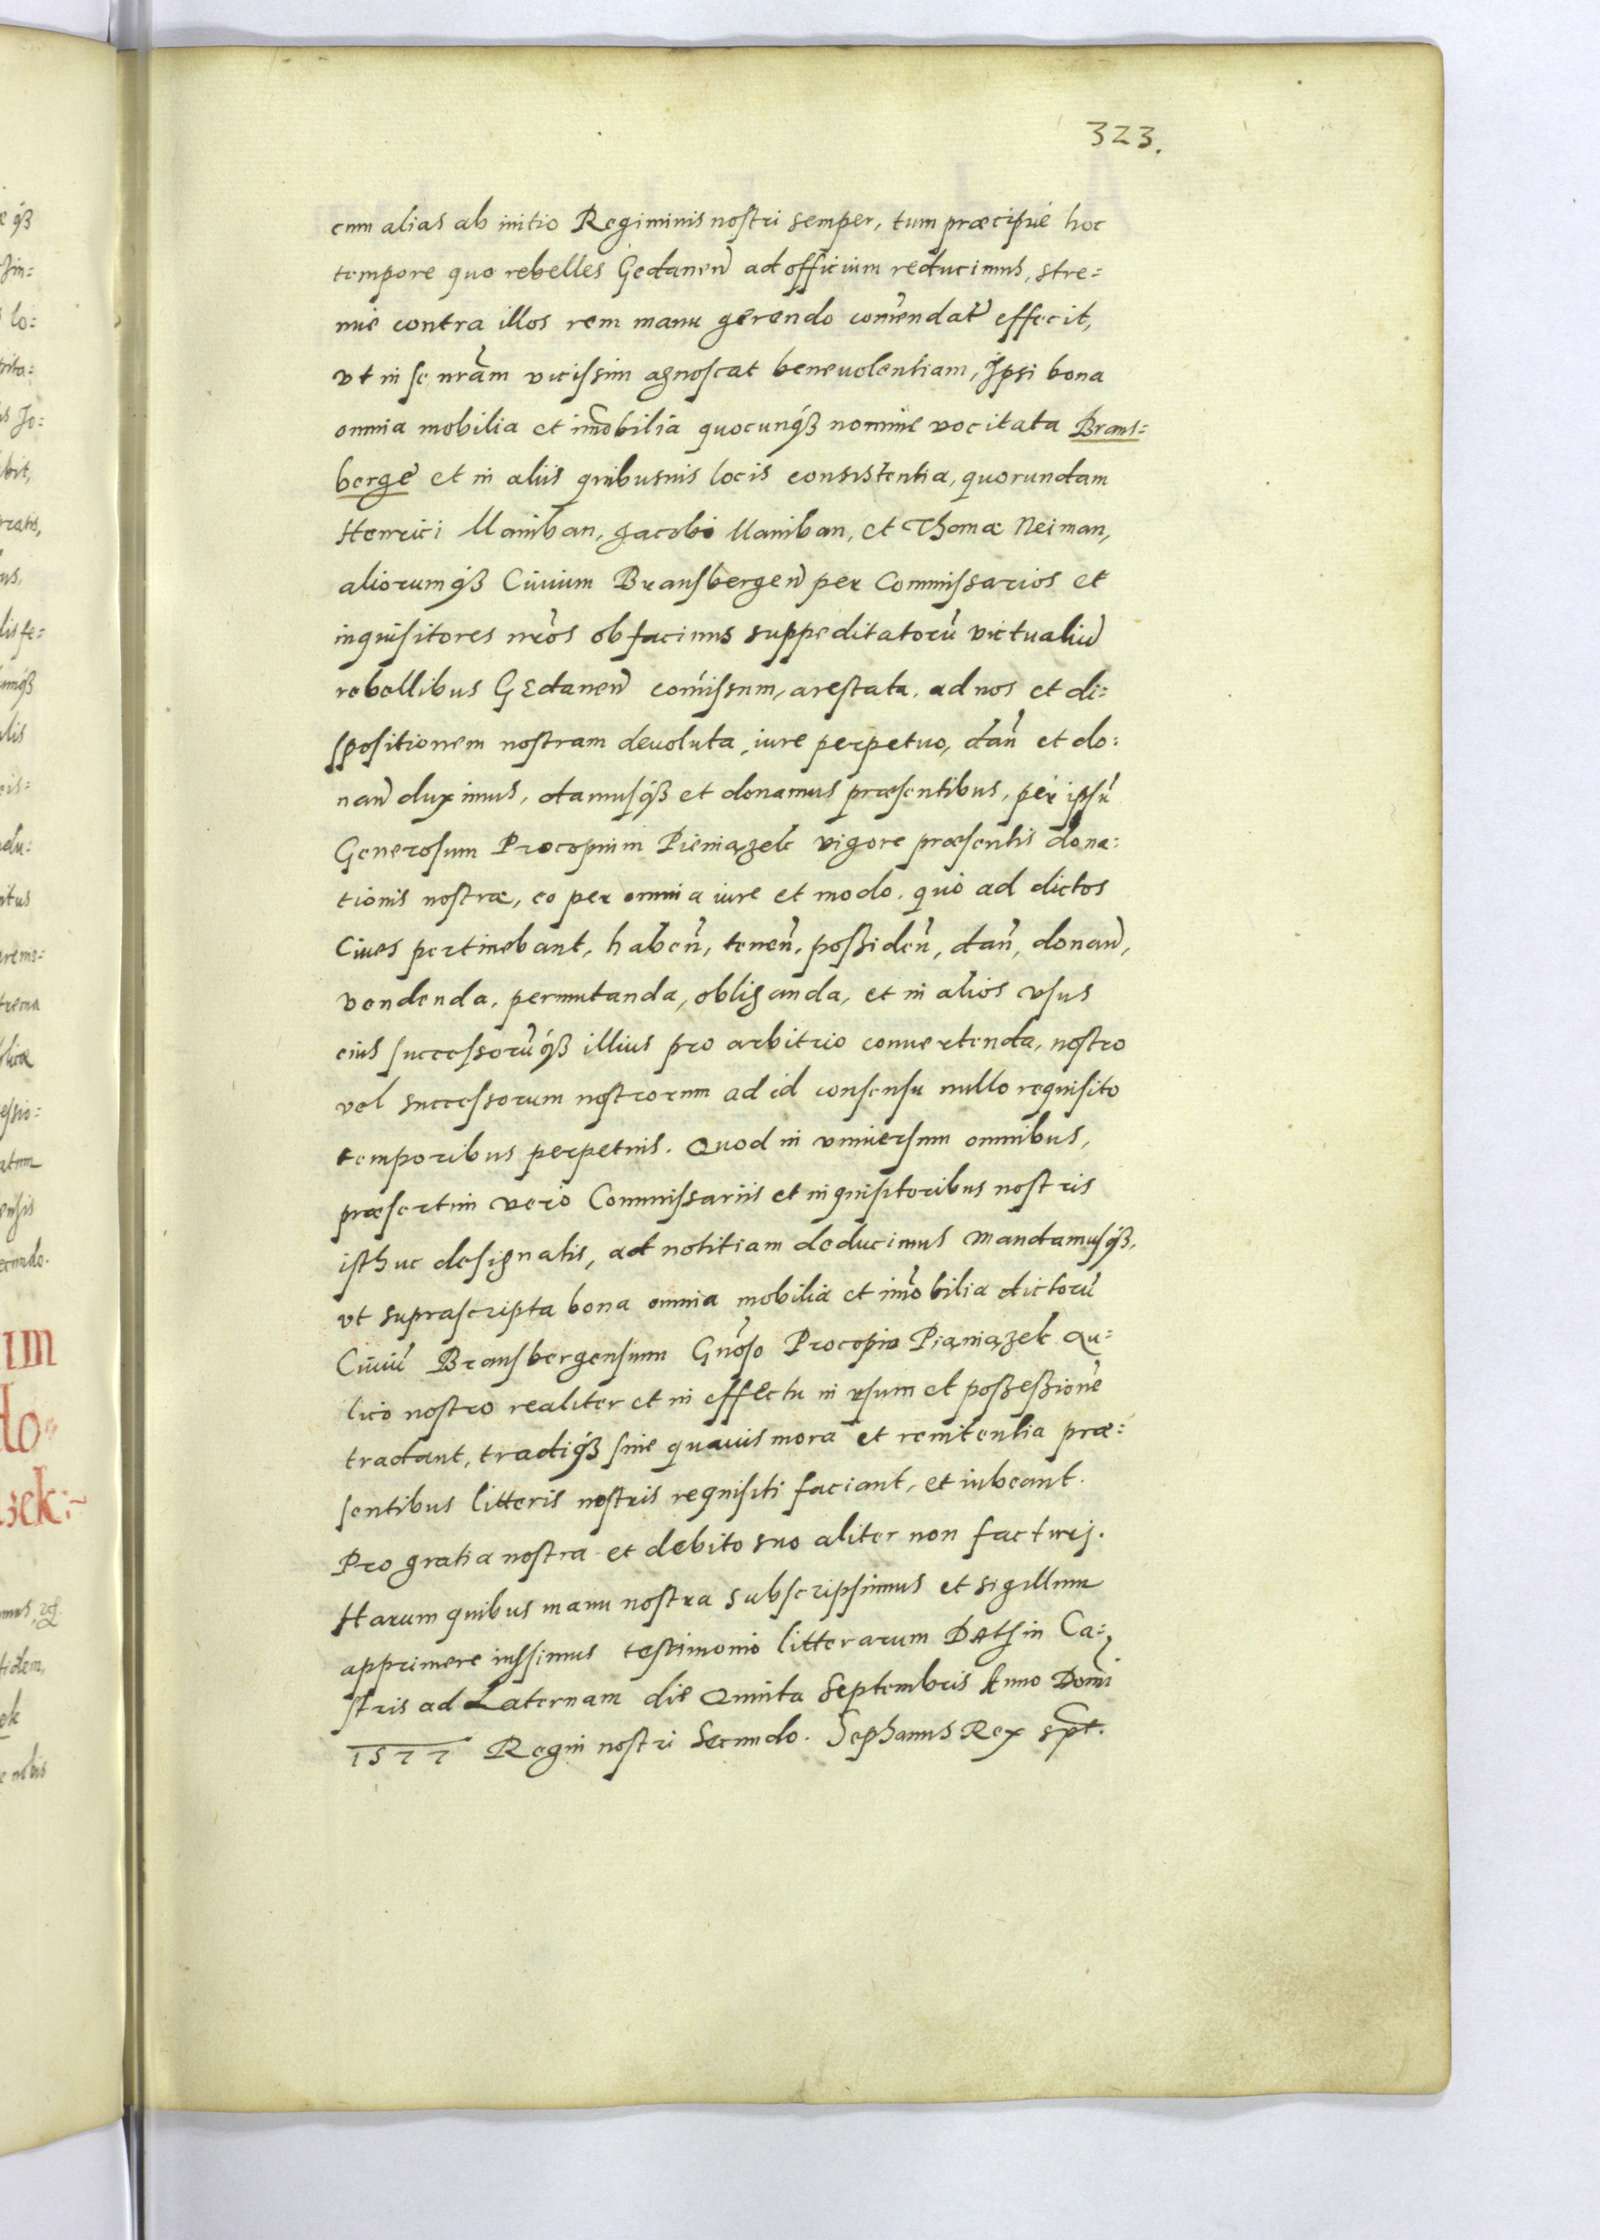 323.
cum alias ab initio Regiminis nostri semper, tum præcipuè hoc
tempore quo rebelles Gedanen̄ ad officium reducimus, stre=
nuè contra illos rem manu gerendo com̄endat̄ effecit,
vt in se nr̄am vicissim agnoscat beneuolentiam, Ipsi bona
omnia mobilia et im̄obilia quocunq́ꝫ nomine vocitata Brans=
bergę et in aliis quibusuis locis consistentia, quorundam
Henrici Maniban, Jacobi Maniban, et Thomæ Neiman,
aliorumq́ꝫ Ciuium Bransbergen̄ per Commissarios et
inquisitores nr̄os ob facinus suppeditatorū victualiū
rebellibus Gedanen̄ com̄issum, arestata, ad nos et di=
spositionem nostram deuoluta, iure perpetuo, dan̄ et do=
nan̄ duximus, damusq́ꝫ et donamus præsentibus, per ipsū
Generosum Procopium Pieniązek vigore præsentis dona=
tionis nostræ, eo per omnia iure et modo, quò ad dictos
Ciues pertinebant, haben̄, tenen̄, possiden̄, dan̄, donan̄,
vendenda, permutanda, obliganda, et in alios vsus
eius successorūq́ꝫ illius pro arbitrio conuertenda, nostro
vel successorum nostrorum ad id consensu nullo requisito
temporibus perpetuis. Quod in vniuersum omnibus,
præsertim verò Commissariis et inquisitoribus nostris
isthuc designatis, ad notitiam deducimus mandamusq́ꝫ,
vt suprascripta bona omnia mobilia et im̄obilia dictorū
Ciuiū Bransbergensium Gn̄oso Procopio Pianiązek Au=
lico nostro realiter et in effectu in vsum et possessionē
tradant, tradiq́ꝫ sine quauis mora et renitentia præ=
sentibus litteris nostris requisiti faciant, et iubeant.
Pro gratia nostra et debito suo aliter non facturi.
Harum quibus manu nostra subscripsimus et sigillum
apprimere iussimus testimonio litterarum Dat̄ in Ca=
stris ad Laternam die Quinta Septembris Anno Domī
1577 Regni nostri Secundo. Sephanus Rex spt.